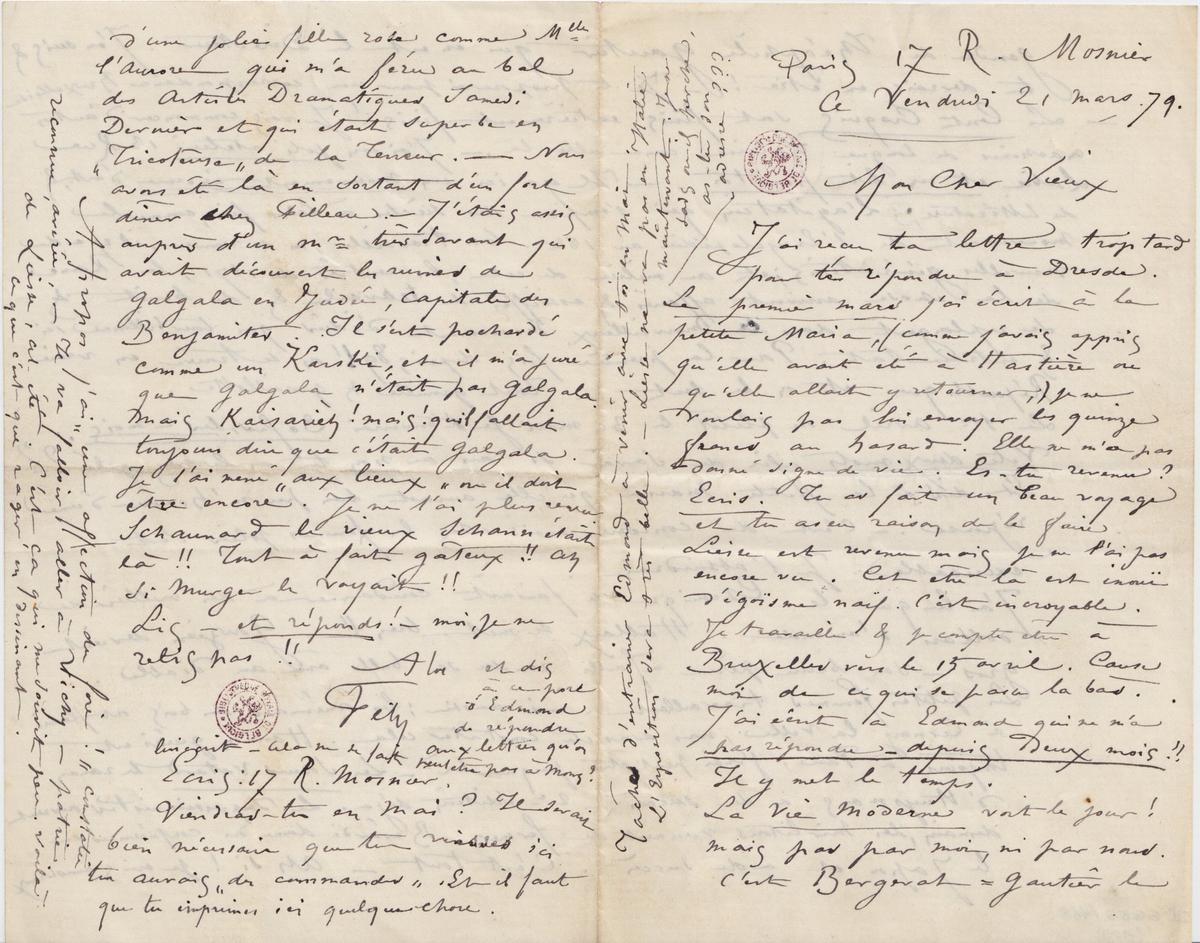 Paris 17 R. Mosnier
Ce Vendredi 21 mars. 79.
Mon Cher Vieux
J'ai reçu ta lettre trop tard
pour te répondre à Dresde.
Le premier mars j'ai écrit à la
petite Maria, (comme j'avais appris
qu'elle avait été à Hastière ou
qu'elle allait y retourner,) je ne
voulais pas lui envoyer les quinze
francs au hasard. Elle ne m'a pas
donné signe de vie. Es-tu revenu?
Ecris. Tu as fait un beau voyage
et tu as eu raison de le faire
Liesse est revenu mais je ne l'ai pas
encore vu. Cet être là est inouï
d'égoïsme naïf. C'est incroyable.
Je travaille & je compte être à
Bruxelles vers le 15 avril. Cause
moi de ce qui se passe là bas.
J'ai écrit à Edmond qui ne m'a
pas répondu – depuis Deux mois!!
Il y met le temps.
La Vie Moderne voit le jour!
mais pas par moi, ni par nous.
c'est Bergerat = Gautier le
Tache d'entrainer Edmond à venir avec toi en mai.
L'Exposition sera très belle. – Liesse ne va pas en Italie
maintenant. Jean
sais où il perche,
as-tu son
adresse
d'une jolie fille rose comme Melle
l'Aurore qui m'a féru au bal
des Artistes Dramatiques Samedi
Dernier et qui était superbe en
"Tricoteuse" de la Terreur. — Nous
avons été là en sortant d'un fort
diner chez Filleau. – J'étais assis
auprès d'un mr très savant qui
avait découvert les ruines de
Galgala en Judée, capitale des
Benjamites. Il s'est pochardé
comme un Karski, et il m'a juré
que Galgala n'était pas Galgala
mais Kaisarieh! mais! qu'il fallait
toujours dire que c'était Galgala.
Je l'ai mené „aux lieux" où il doit
être encore. Je ne l'ai plus revu
Schaunard le vieux Schann était
là!! Tout à fait gâteux!! Ah
si Murger le voyait!!
Lis – et réponds! – moi, je ne
relis pas!!
A toi
Fély
et dis
à ce porc
d'Edmond
de répondre
aux lettres qu'on
lui écrit – cela ne se fait peut être pas à Mons?
Ecris: 17 R. Mosnier.
Viendras-tu en mai? Il serait
bien nécessaire que tu viennes ici
tu aurais „des commandes". Et il faut
que tu imprimes ici quelque chose.
Apropos j'ai „une affection du foie"! constatée
reconnue, avérée – Il va falloir aller à Vichy – patrie
de Liesse, cet été. C'est ça qui me sourit peu. Voilà
ce que c'est que rager, en dessinant.